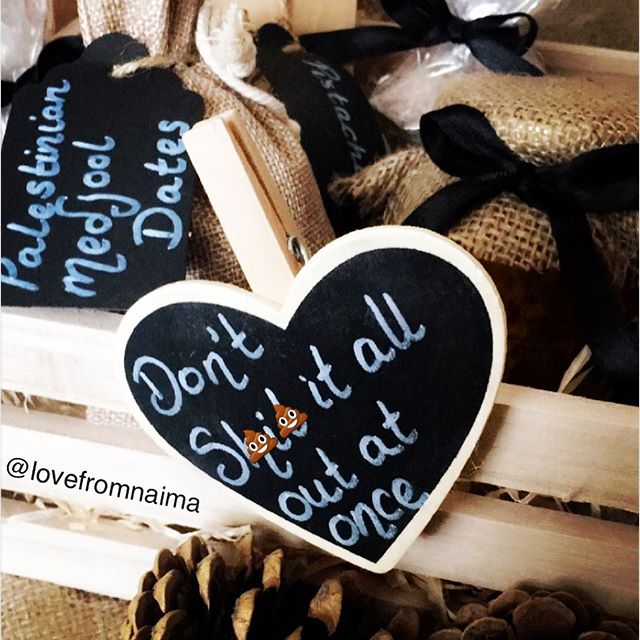 Palestinian
Medjool
Dates
Pistach
Don't
Shit it all
out at
once
@lovefromnaima